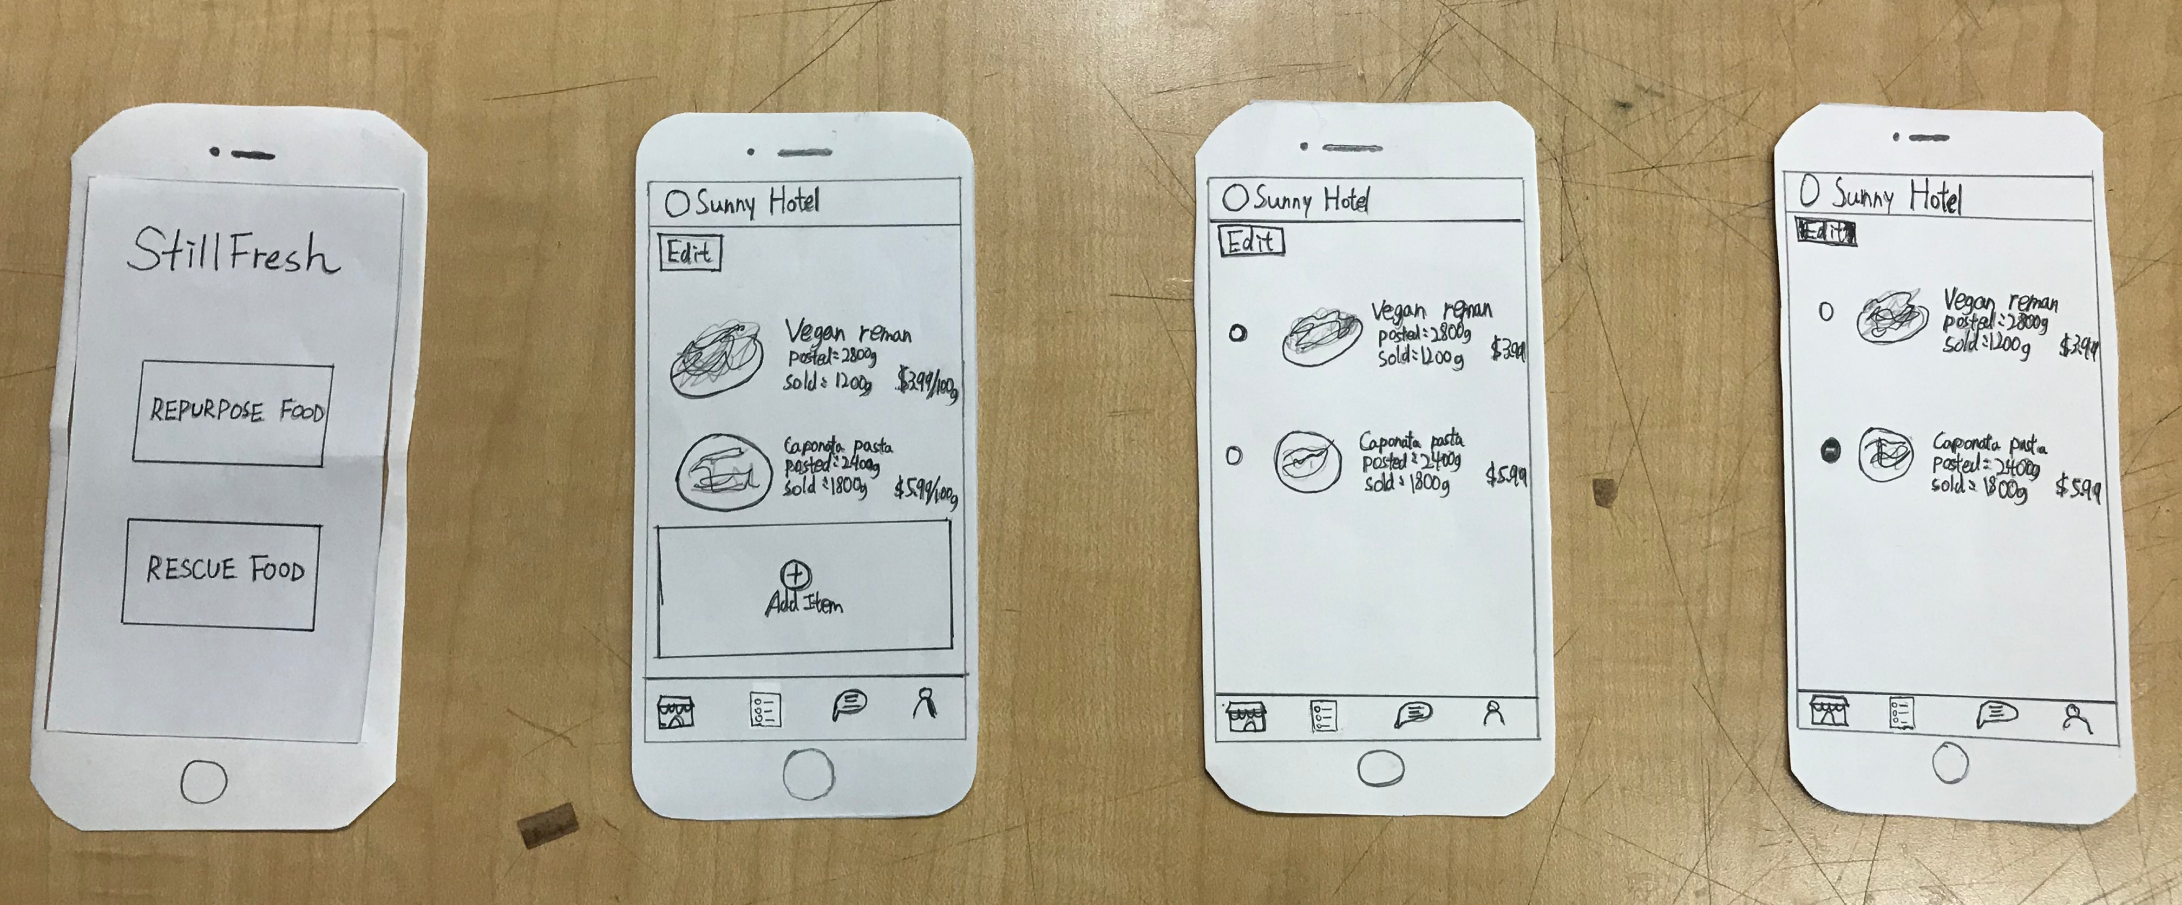 StillFresh
REPURPOSE FOOD
RESCUE FOOD
Sunny Hotel
Edit
Vegan reman
posted: 2800g
sold: 1200g $3.99/100g
Caponata pasta
posted: 2400g
sold: 1800g $5.99/100g
Add Item
Sunny Hotel
Edit
Vegan reman
posted: 2800g
sold: 1200g $3.99
Caponata pasta
posted: 2400g
sold: 1800g $5.99
Sunny Hotel
Edit
Vegan reman
posted: 2800g
sold: 1200g $3.99
Caponata pasta
posted: 2400g
sold: 1800g $5.99